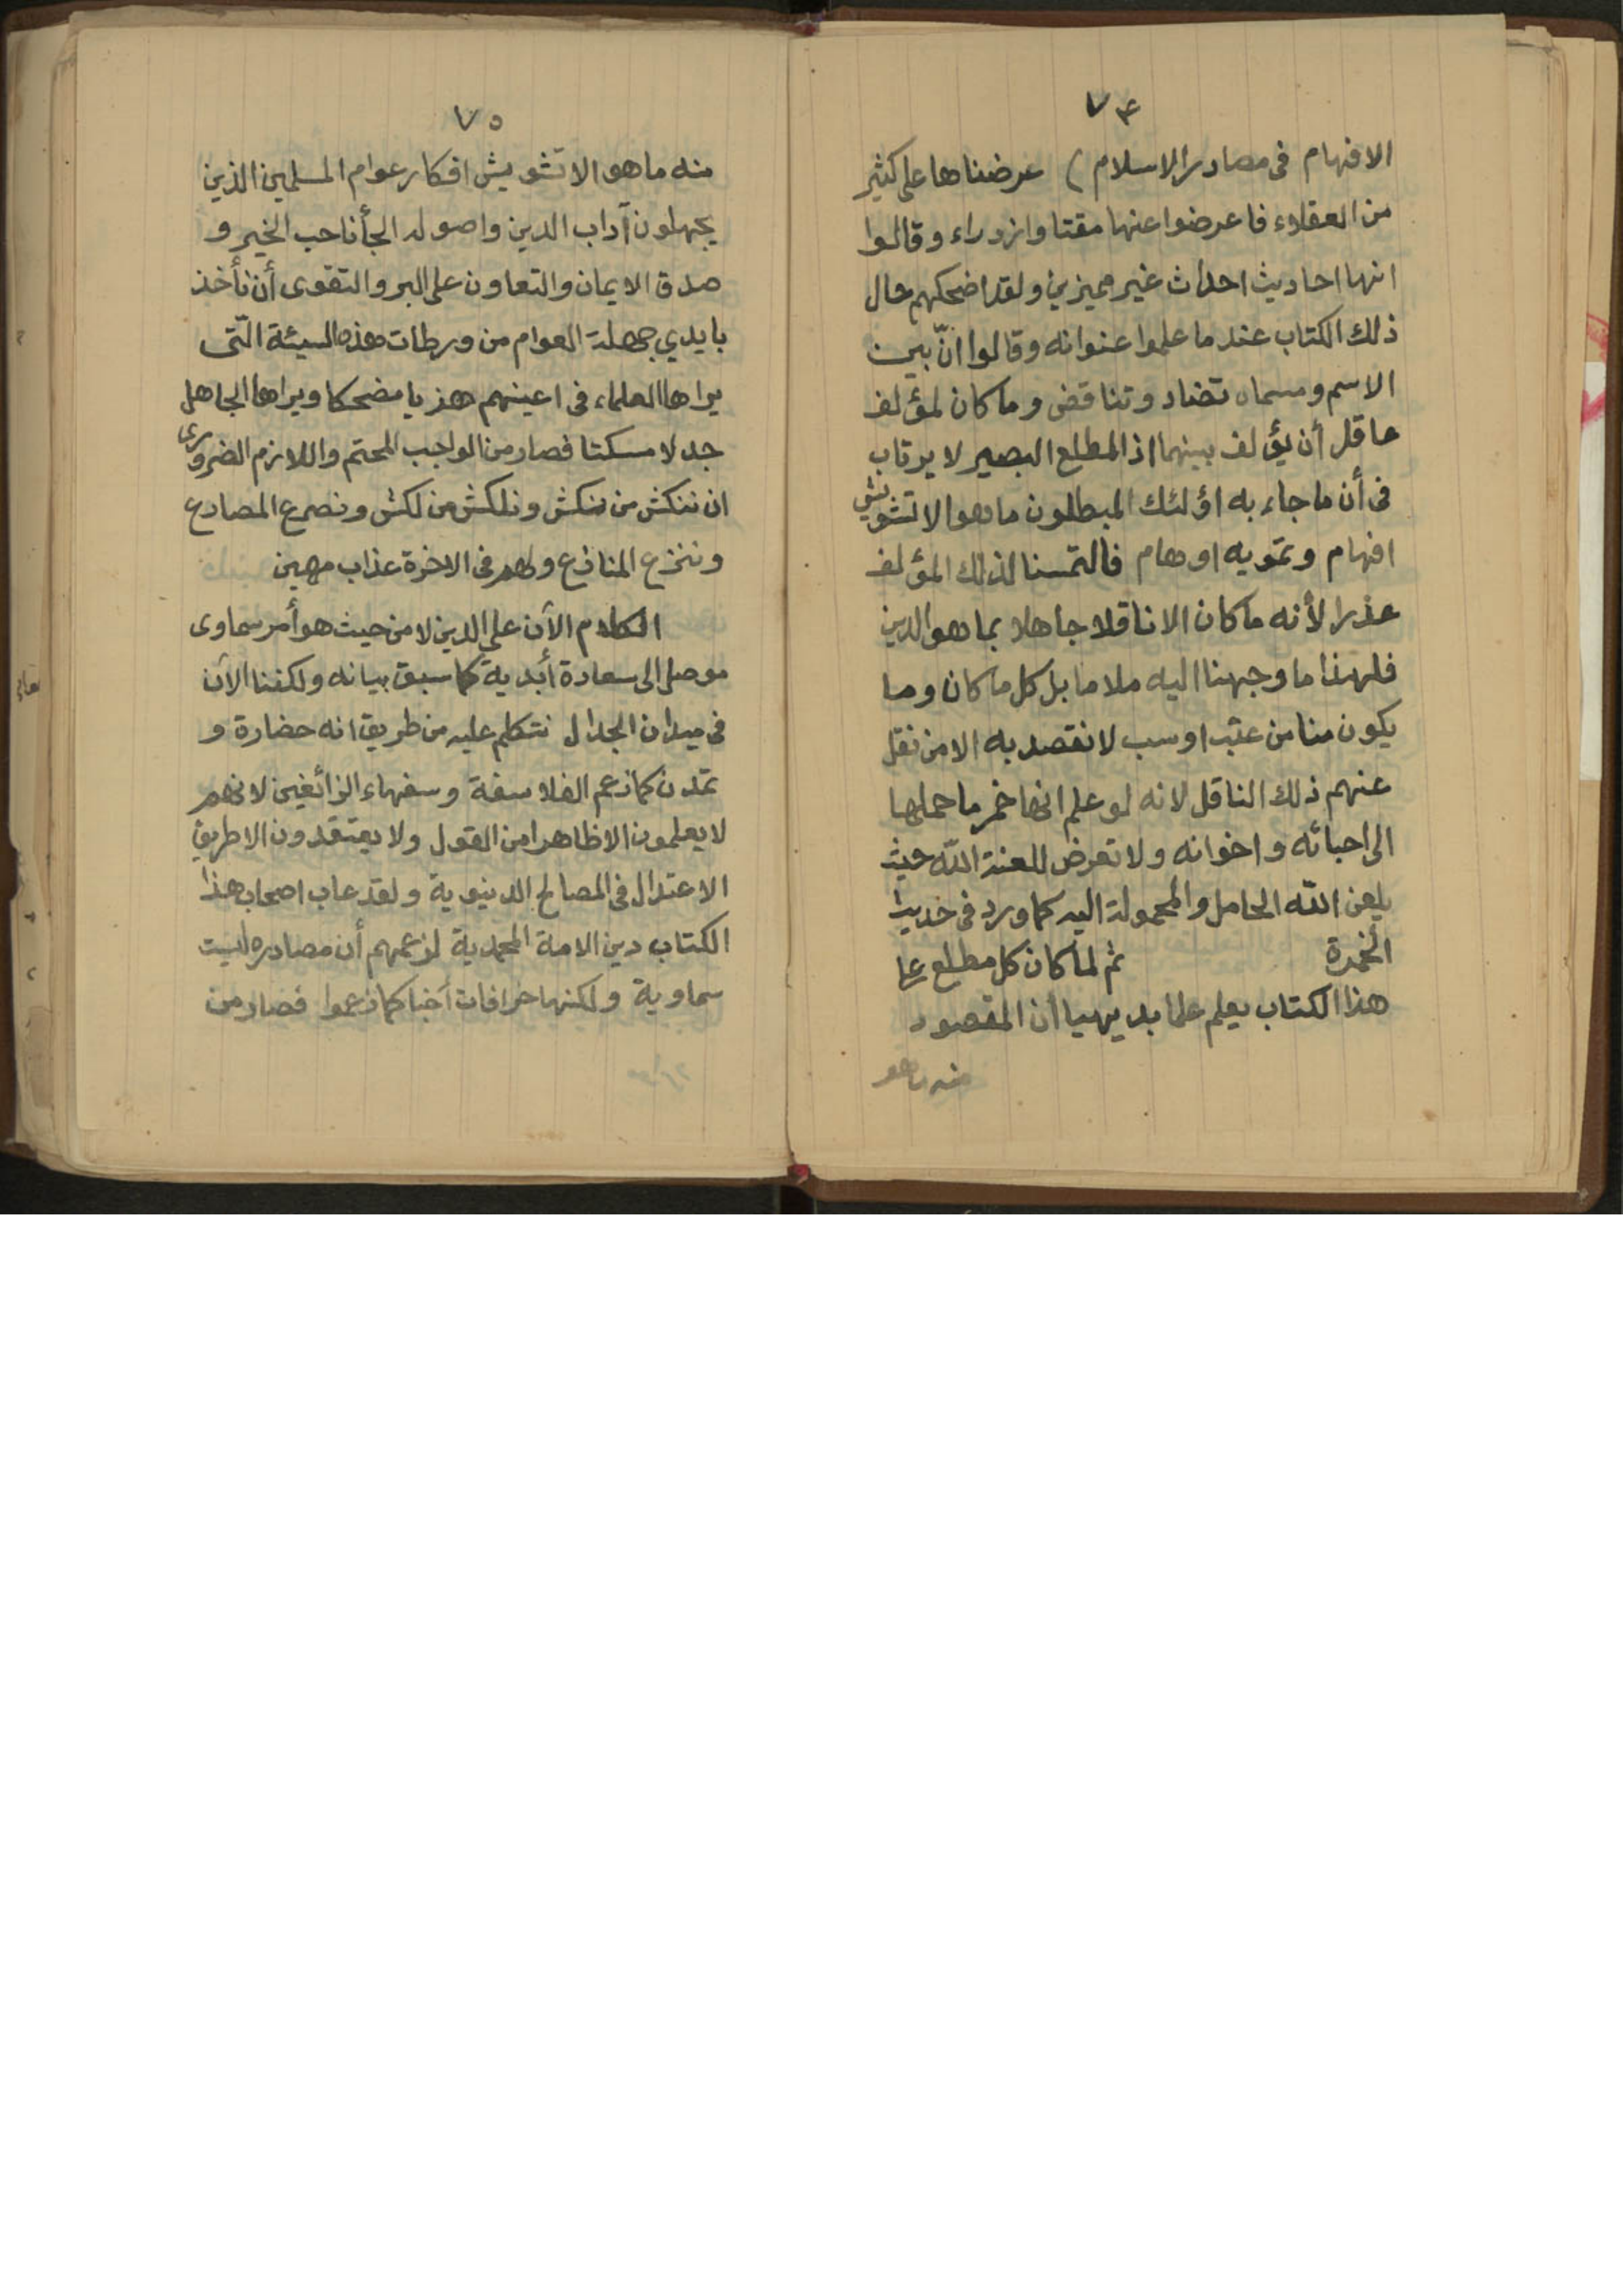 ٧٤
الافهام فى مصادر الاسلام ) عرضناها على كثير
من العقلاء فاعرضوا عنها مقتا وازدراء وقالوا
انها احاديث احداث غير مميزين ولقد اضحكهم حال
ذلك الكتاب عند ما علموا عنوانه وقالوا انّ بين
الاسم ومسماه تضاد وتناقض وما كان لمؤلف
عاقل أن يؤلف بينهما اذ المطلع البصير لا يرتاب
فى أن ما جاء به اؤلئك المبطلون ما هو الا تشويش
افهام وتمويه اوهام فالتمسنا لذلك المؤلف
عذرا لأنه ما كان الا ناقلا جاهلا بما هو الدين
فلهذا ما وجهنا اليه ملاما بل كل ما كان وما
يكون منا من عتب او سب لا نقصد به الا من نقل
عنهم ذلك الناقل لانه لو علم انها خمر ما حملها
الى احبائه واخوانه ولا تعرض للعنة اللّه حيث
يلعن اللّه الحامل والمحمولة اليه كما ورد فى حديث
الخمرة ثم لما كان كل مطلع على
هذا الكتاب يعلم علما بديهيا أن المقصود
منه ما هو
٧٥
منه ما هو الا تشويش افكار عوام المسلمين الذين
يجهلون آداب الدين واصوله الجأنا حب الخير و
صدق الايمان والتعاون على البر والتقوى أن نأخذ
بايدي جهلة العوام من ورطات هذه السيئة الّتى
يراها العلماء فى اعينهم هذيا مضحكا ويراها الجاهل
جدلا مسكتا فصار من الواجب المحتم واللازم الضرورى
ان ننكش من نكش ونلكش من لكش ونصرع المصادع
وننزع المنازع ولهم فى الاخرة عذاب مهين
الكلام الآن على الدين لا من حيث هو أمر سماوى
موصل الى سعادة أبدية كما سبق بيانه ولكننا الآن
فى ميدان الجدال نتكلم عليه من طريق انه حضارة و
تمدن كما زعم الفلاسفة وسفهاء الزائغين لانهم
لا يعلمون الا ظاهرا من القول ولا يعتقدون الا طريق
الاعتدال فى المصالح الدنيوية ولقد عاب اصحاب هذا
الكتاب دين الامة المحمدية لزعمهم أن مصادره ليست
سماوية ولكنها خرافات كما زعموا فصار من